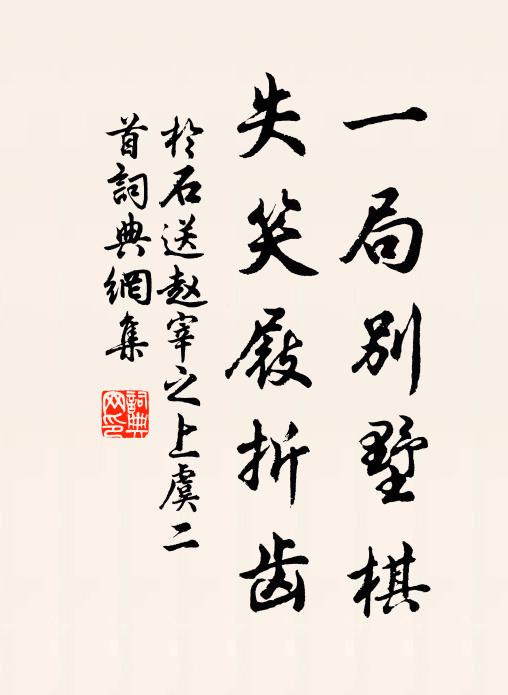 一局别墅棋
失笑屐折齿
於石送赵宰之上虞二
首詞典網集
詞典
网印